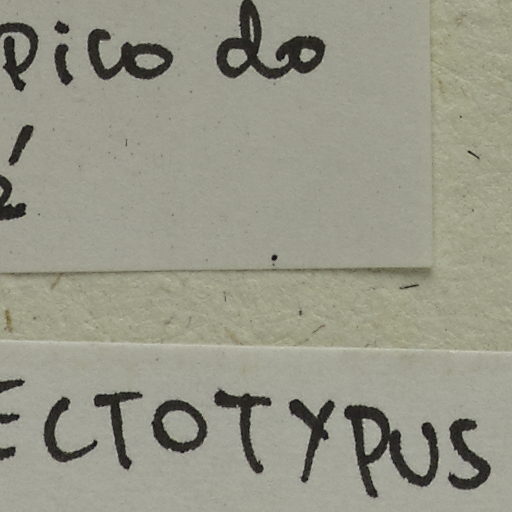 Pico do
é
ECTOTYPUS